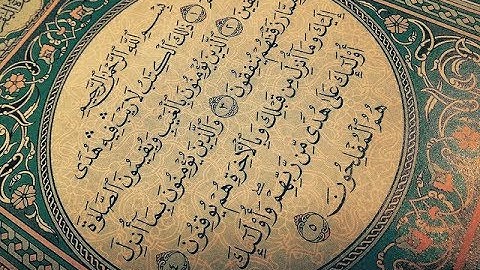 بِسْمِ ٱللَّهِ ٱلرَّحْمَٰنِ ٱلرَّحِيمِ
۝١ ذَٰلِكَ ٱلْكِتَٰبُ لَا رَيْبَ فِيهِ هُدًى
۝٢ ٱلَّذِينَ يُؤْمِنُونَ بِٱلْغَيْبِ وَيُقِيمُونَ ٱلصَّلَوٰةَ
رَزَقْنَٰهُمْ يُنفِقُونَ ۝٣ وَٱلَّذِينَ يُؤْمِنُونَ بِمَآ أُنزِلَ
إِلَيْكَ وَمَآ أُنزِلَ مِن قَبْلِكَ وَبِٱلْءَاخِرَةِ هُمْ يُوقِنُونَ ۝٤
أُو۟لَٰٓئِكَ عَلَىٰ هُدًى مِّن رَّبِّهِمْ وَأُو۟لَٰٓئِكَ
هُمُ ٱلْمُفْلِحُونَ ۝٥